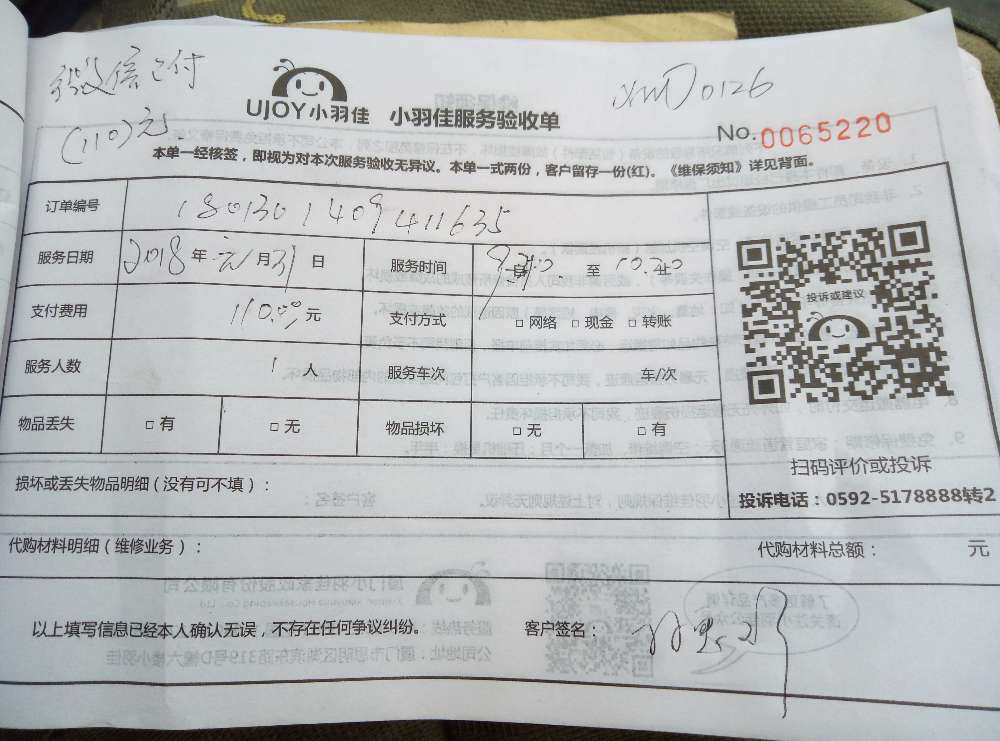 微信支付
(110)元
UJOY小羽佳 小羽佳服务验收单
XMD0126
No.0065220
本单一经核签，即视为对本次服务验收无异议。本单一式两份，客户留存一份(红)。《维保须知》详见背面。
订单编号 1801301409411635
服务日期 2018年元月31日 服务时间 至10:20
支付费用 110.00元 支付方式 □网络 □现金 □转账
服务人数 1人 服务车次 车/次
物品丢失 □有 □无 物品损坏 □无 □有
投诉或建议
扫码评价或投诉
投诉电话：0592-5178888转2
损坏或丢失物品明细（没有可不填）：
代购材料明细（维修业务）： 代购材料总额： 元
以上填写信息已经本人确认无误，不存在任何争议纠纷。 客户签名：